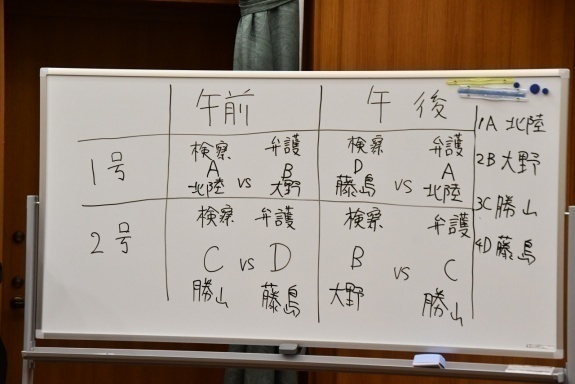 午前 午後
1号
検察 弁護 検察 弁護
A vs B D vs A
北陸 大野 藤島 北陸
2号
検察 弁護 検察 弁護
C vs D B vs C
勝山 藤島 大野 勝山
1A 北陸
2B 大野
3C 勝山
4D 藤島